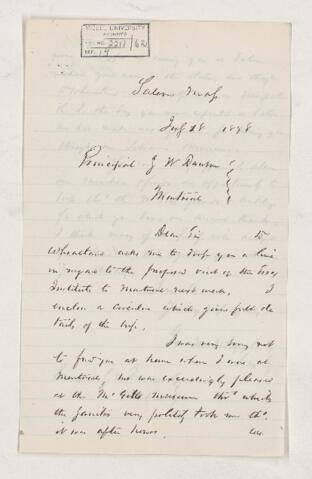 McGILL UNIVERSITY
ARCHIVES
ACC. NO. 2211/62
REF. 14
Salem Mass
July 28 1888
Principal J W Dawson
Montreal
Dear Sir Dr
Wheatland asks me to drop you a line
in regard to the proposed visit of the Essex
Institute to Montreal next week. I
enclose a circular which gives full de
tails of the trip.
I was very sorry not
to find you at home when I was at
Montreal, but was exceedingly pleased
at the McGill Museum thro' which
the janitor very politely took me tho.
it was after hours.